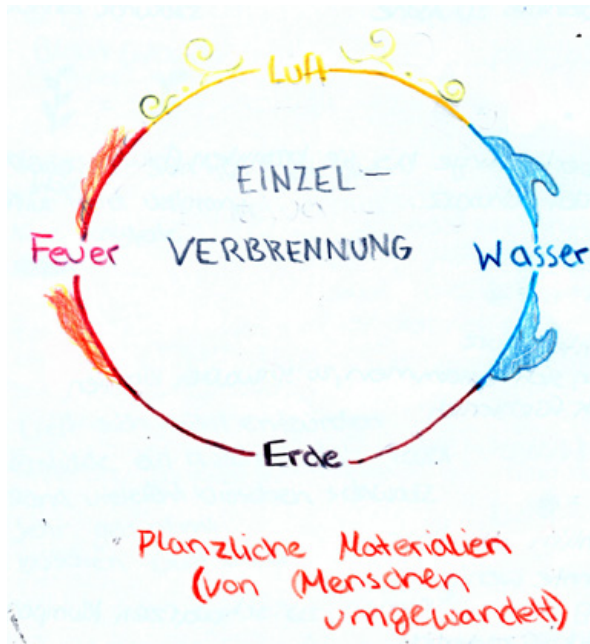 Luft
EINZEL-
Feuer VERBRENNUNG Wasser
Erde
Planzliche Materialien
(von Menschen
umgewandelt)